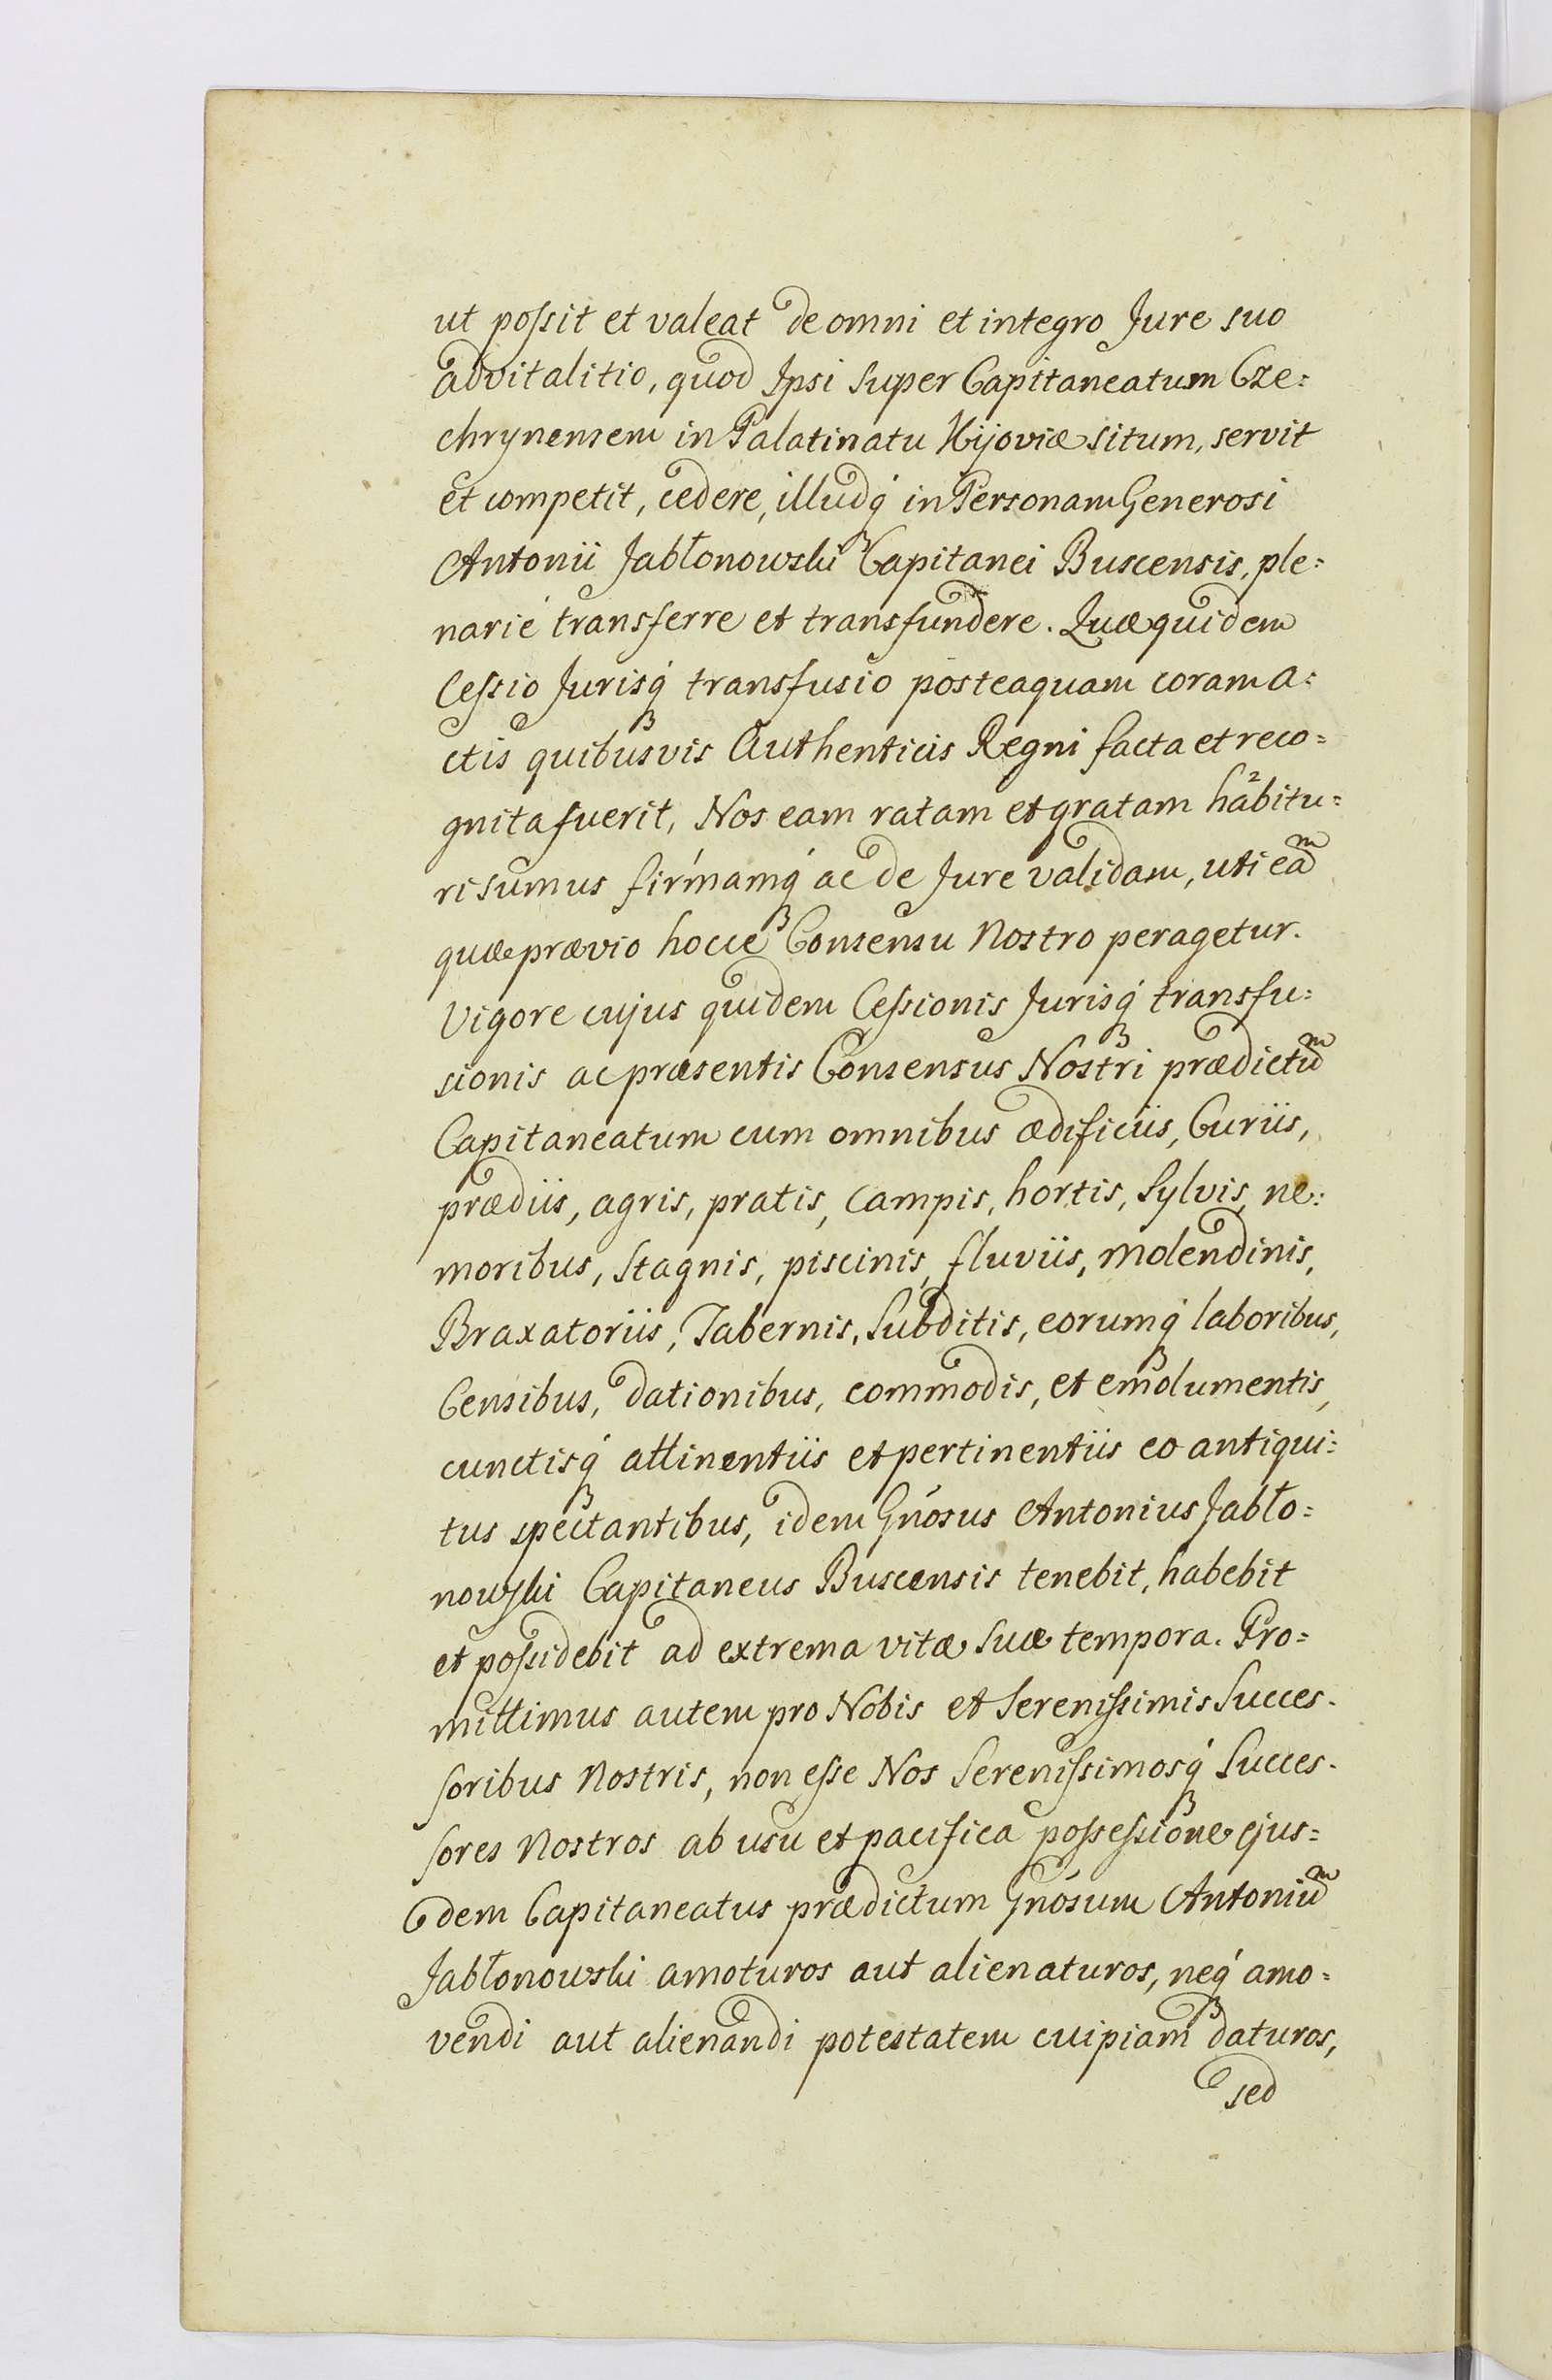 ut possit et valeat de omni et integro Jure suo
advitalitio, quod Ipsi super Capitaneatum Cze=
chrynensem in Palatinatu Kijoviæ situm, servit
et competit, cedere, illudq́ in Personam Generosi
Antonii Jabłonowski Capitanei Buscensis, ple=
narie transferre et transfundere. Quæ quidem
Cessio Jurisq́ transfusio posteaquam coram A=
ctis quibusvis Authenticis Regni facta et reco=
gnita fuerit, Nos eam ratam et gratam habitu=
ri sumus firmamq́ ac de Jure validam, uti eaᵐ
quæ prævio hocce Consensu Nostro peragetur.
Vigore cujus quidem Cessionis Jurisq́ transfu=
sionis ac præsentis Consensus Nostri prædictuᵐ
Capitaneatum cum omnibus ædificiis, Curiis,
prædiis, agris, pratis, campis, hortis, sylvis, ne=
moribus, stagnis, piscinis, fluviis, molendinis,
Braxatoriis, Tabernis, subditis, eorumq́ laboribus,
Censibus, dationibus, commodis, et emolumentis,
cunctisq́ attinentiis et pertinentiis eo antiqui=
tus spectantibus, idem Gnósus Antonius Jabło=
nowski Capitaneus Buscensis tenebit, habebit
et possidebit ad extrema vitæ suæ tempora. Pro=
mittimus autem pro Nobis et Serenissimis Succes-
soribus Nostris, non esse Nos Serenissimosq́ Succes-
sores Nostros ab usu et pacifica possessione ejus=
dem Capitaneatus prædictum Gnósum Antoniuᵐ
Jabłonowski amoturos aut alienaturos, neq́ amo=
vendi aut alienandi potestatem cuipiam daturos,
sed